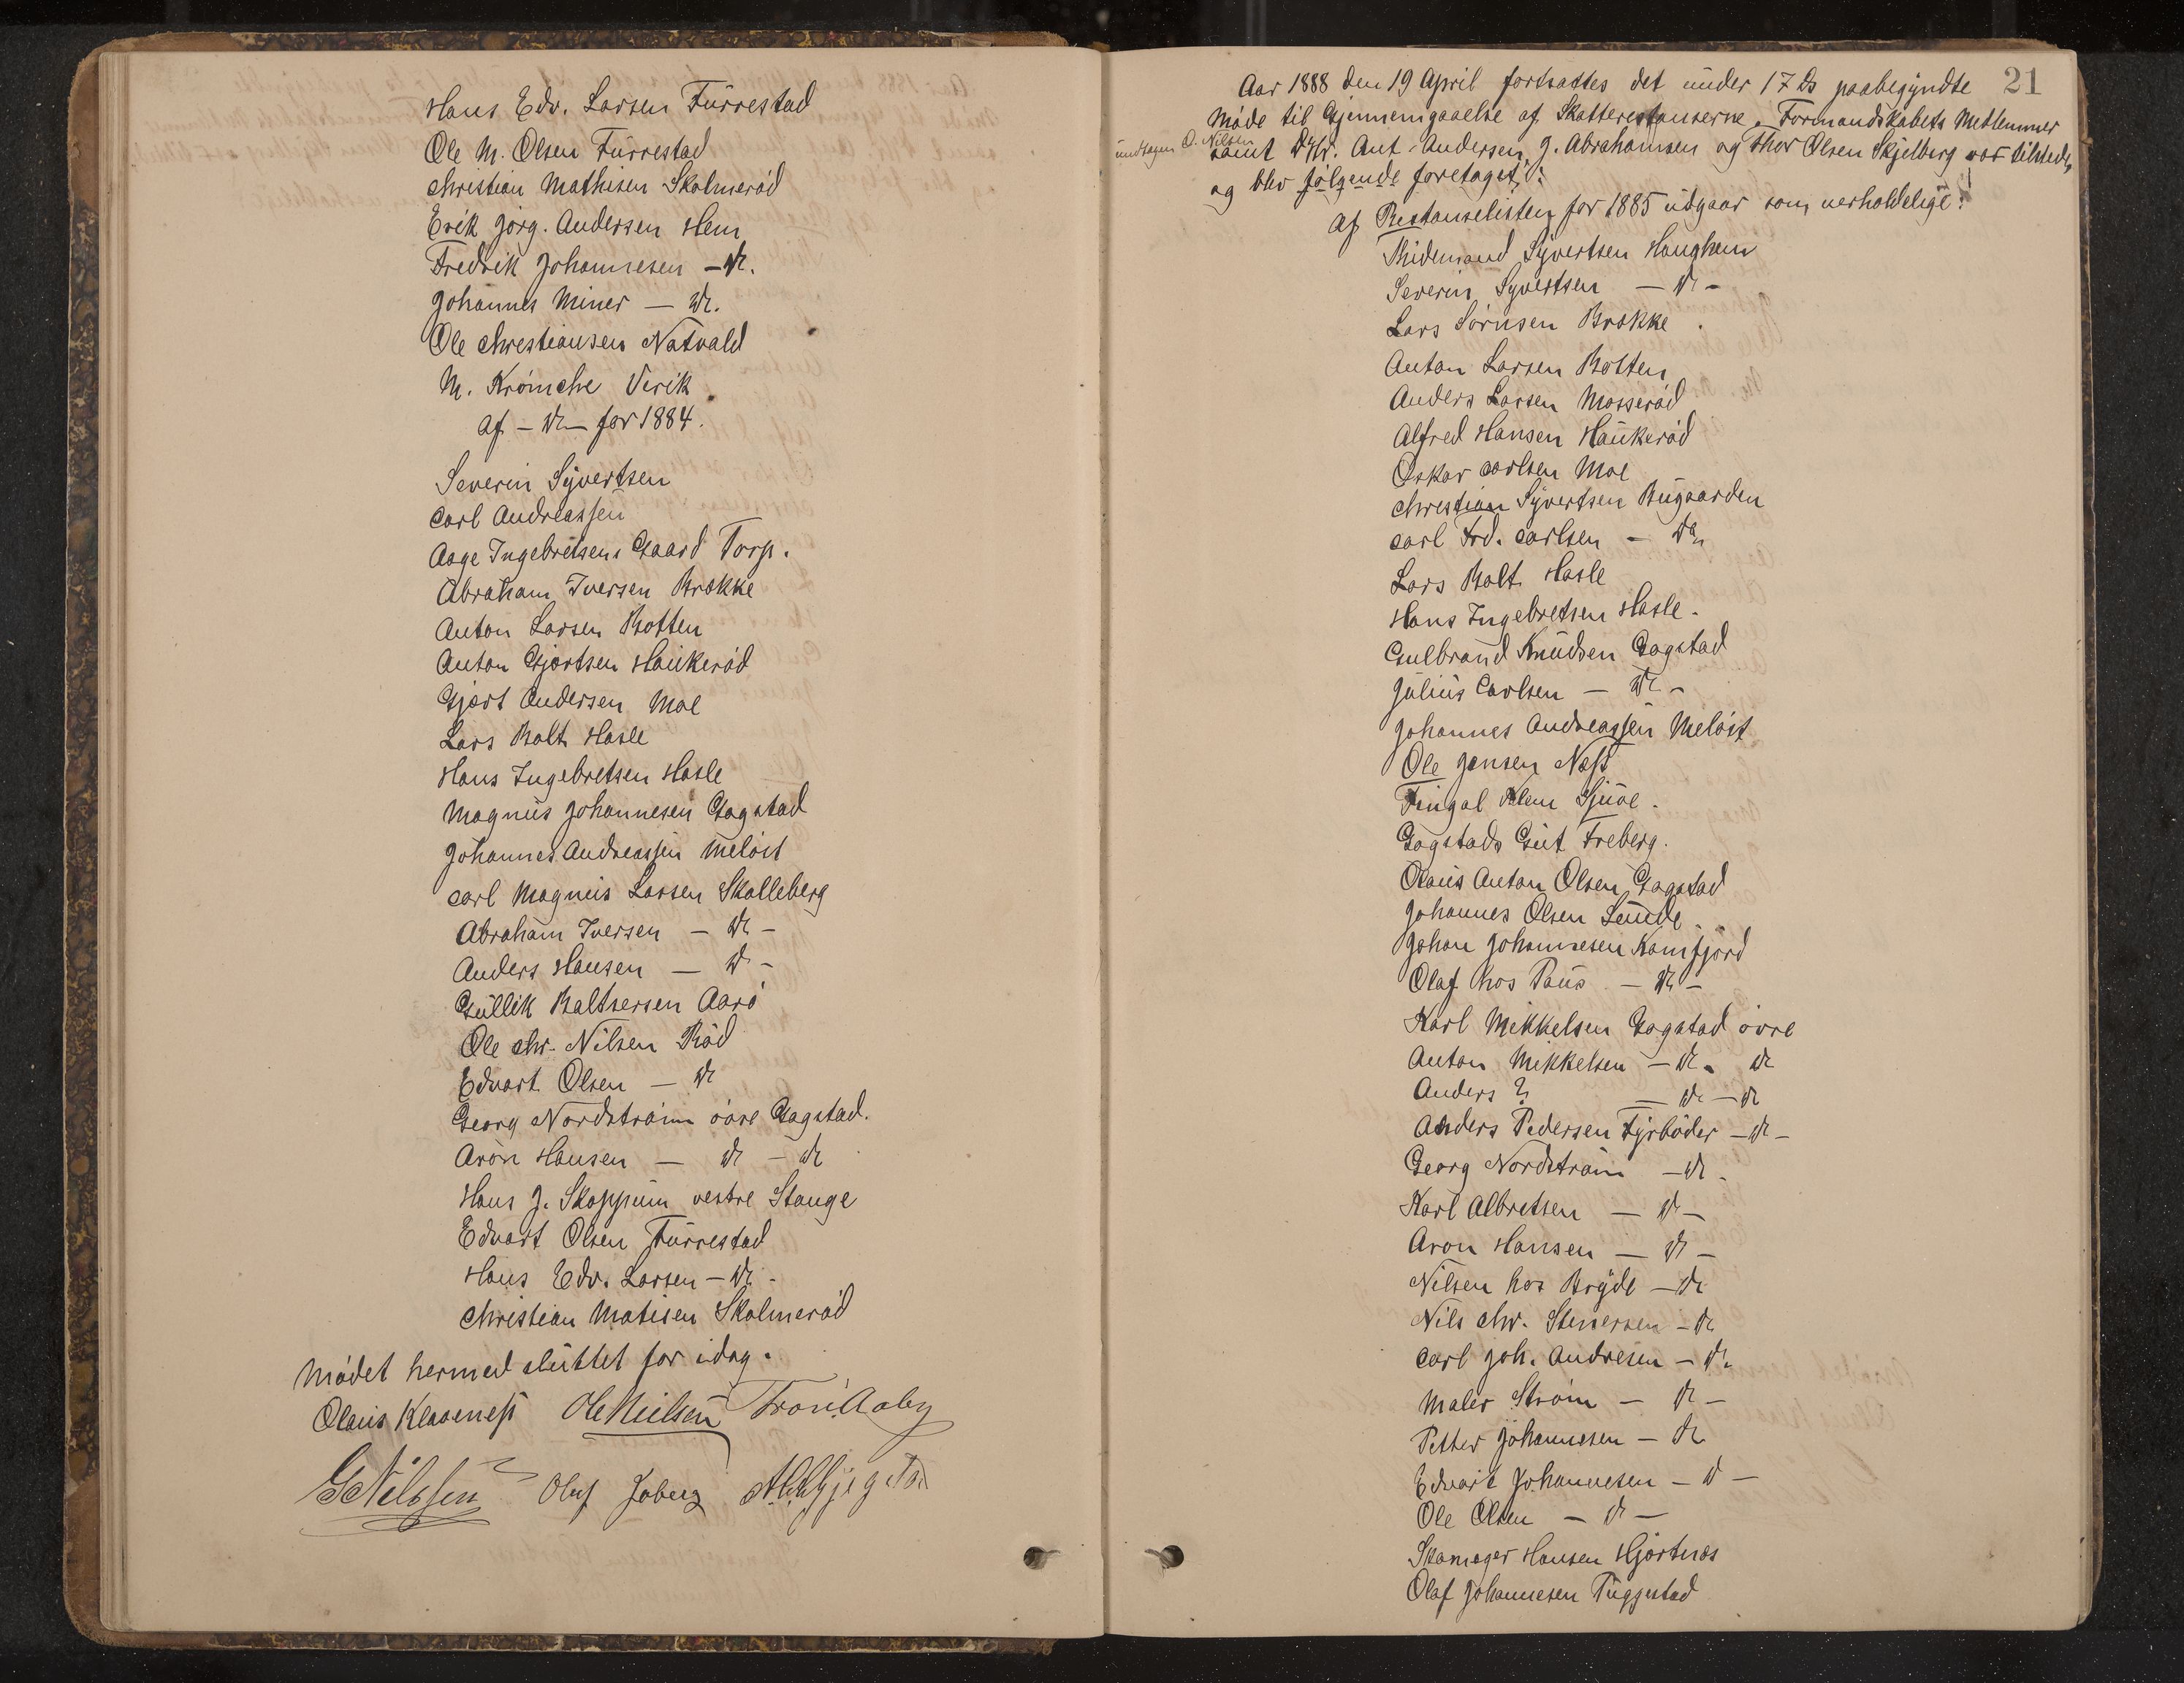 Hans Edv. Larsen Furrestad
Ole M. Olsen Furrestad
Christian Mathisen Skolmeröd
Erik Jörg. Andersen Hem
Fredrik Johannesen – do.
Johannes Miner — do.
Ole Christiansen Natvald
M. Krömche Virik
af – do – for 1884.
Severin Syvertsen
Carl Andreassen
Aage Ingebretsen Gaard Torp.
Abraham Iversen Brokke
Anton Larsen Rotten
Anton Gjertsen Haukeröd
Gjert Andersen Moe
Lars Balt. Hasle
Hans Ingebretsen Hasle
Magnus Johannesen Gogstad
Johannes Andreassen Melöst
Carl Magnus Larsen Skalleberg
Abraham Iversen – do –
Anders Hansen — do –
Gullik Baltsersen Aarö
Ole Chr. Nilsen Röd
Edvart Olsen – do
Georg Nordström övre Gogstad.
Aron Hansen — do – do
Hans J. Skoppum vestre Stange
Edvart Olsen Furrestad
Hans Edv. Larsen – do –
Christian Matisen Skolmeröd
Mödet hermed sluttet for idag.
Olaus Klavenesß Ole Nielsen Aaby
G Nilssen Oluf Joberg
21
Aar 1888 den 19 April fortsattes det under 17 ds paabegyndte
Möde til Gjennemgaaelse af Skatterestanserne. Formandskabets Medlemmer
undtagen O. Nilsen
samt Ant. Andersen, J. Abrahamsen og Thor Olsen Skjelberg var tilstede,
og blev fölgende foretaget:
Af Restanselisten for 1885 udgaar som uerholdelige:
Syvertsen Haughem
Severin Syvertsen — do –
Lars Sörnsen Brokke
Anton Larsen Rotten
Anders Larsen Mosseröd
Alfred Hansen Haukeröd
Oskar Carlsen Moe
Christian Syvertsen Bugaarden
Carl Frd. Carlsen – do
Lars Balt. Hasle
Hans Ingebretsen Hasle.
Gulbrand Knudsen Gogstad
Julius Carlsen – do –
Johannes Andreassen Melöst
Ole Jensen Næss
Fingal Klem Sjuve.
Gogstads Gut Freberg.
Olaus Anton Olsen Gogstad
Johannes Olsen Lunde
Johan Johannesen Kamfjord
Olaf hos Paus – do –
Karl Mikkelsen Gogstad övre
Anton Mikkelsen – do. do
Anders ? — do – do
Anders Pedersen Fyrböder – do –
Georg Nordström – do.
Karl Albretsen — do –
Aron Hansen — do –
Nilsen hos Bryde – do
Nils Chr. Stenersen – do
Carl Joh. Andresen – do
Maler Ström – do –
Petter Johannesen – do
Edvart Johannesen – do –
Ole Olsen – do –
Skomager Hansen Hjertnæs
Olaf Johannesen